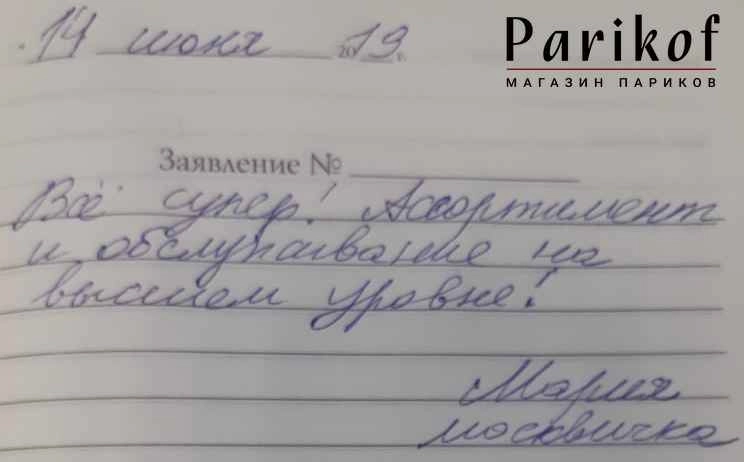 14 июня 2019 г.
Parikof
МАГАЗИН ПАРИКОВ
Заявление №
Всё супер! Ассортимент
и обслуживание на
высшем уровне!
Мария
москвичка